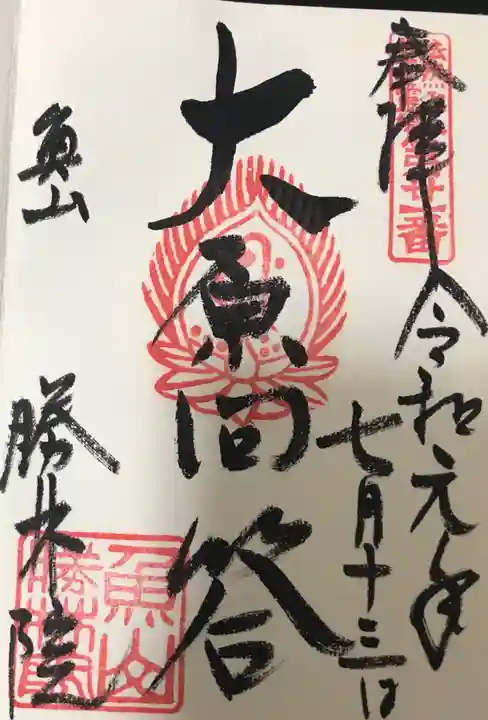 奉拝
令和元年
七月十三日
大原問答
魚山
勝林院
魚山
勝林院